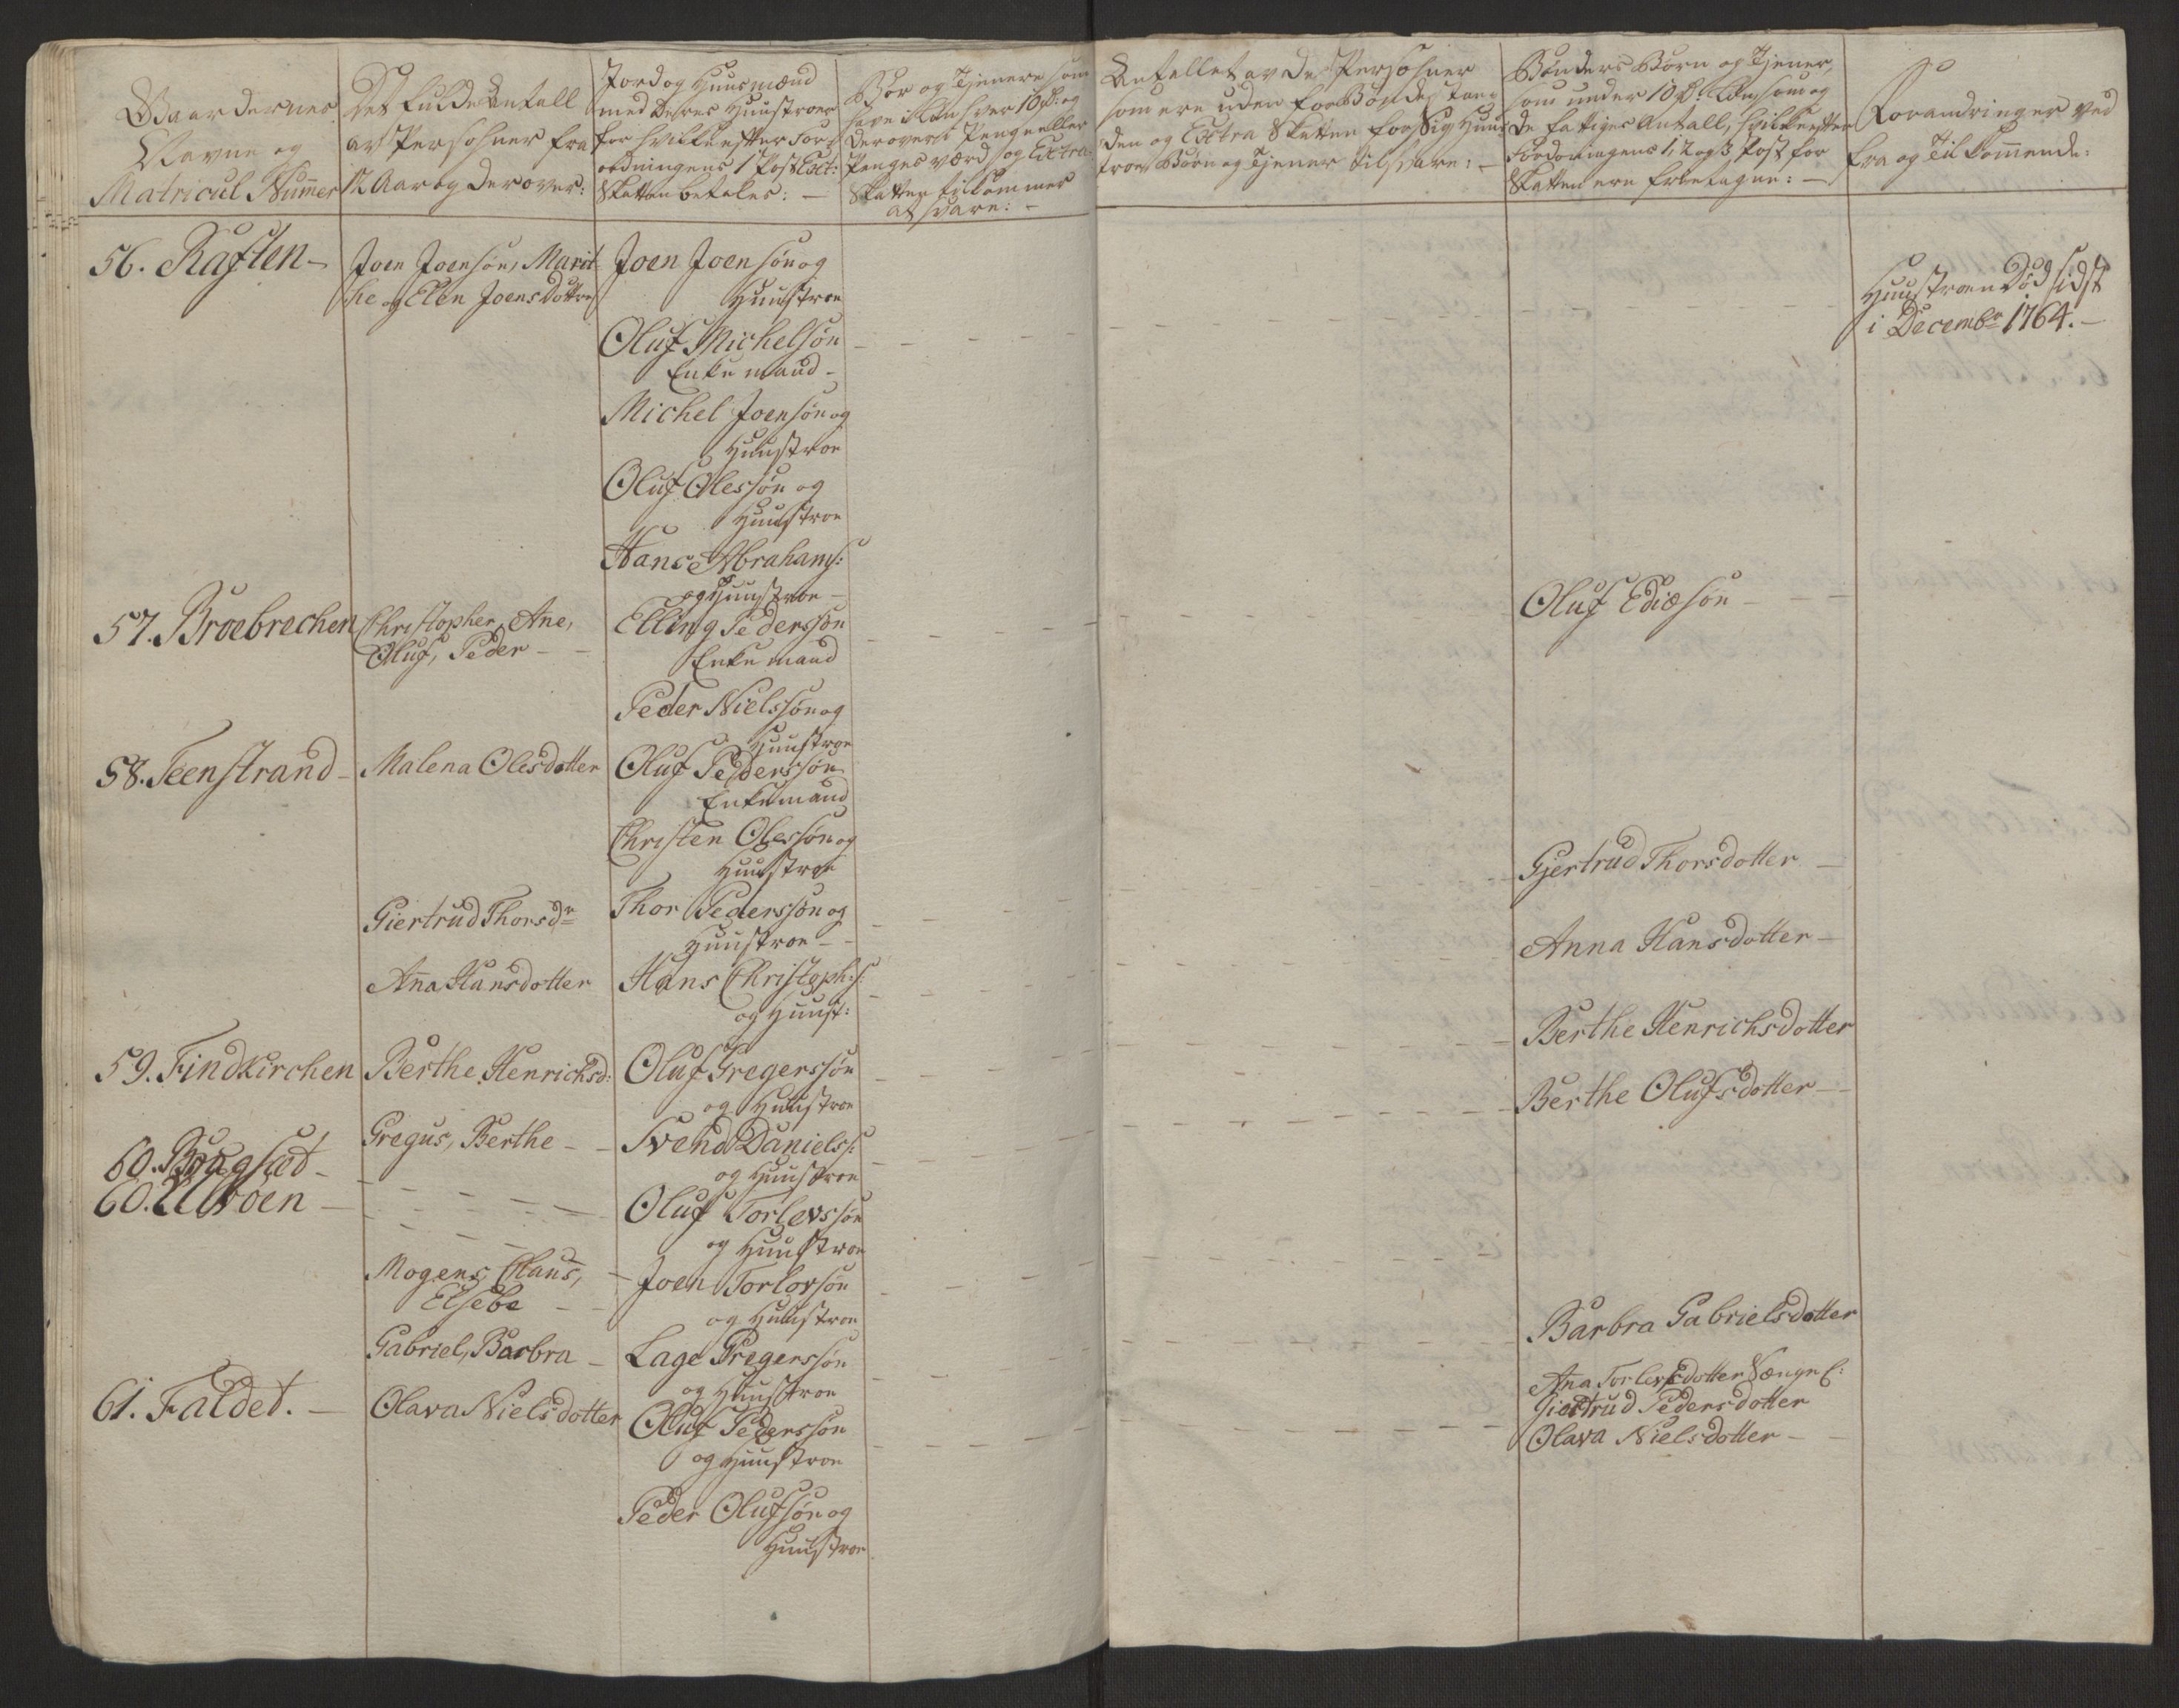 Gaardernes
Navne og
Matricul Nummer
Det fulde Antall
av Persohner fra
12 Aar og derover:
Jord og Huusmænd
med deres Huustroer
for hvilke efter For-
ordningens 1 Post Ext:
Skatten betales: —
Bør og Tjenere som
have i Løn hver 10 rd: og
derover i Penge eller
Penges værd og Extra
Skatten tilkommer
at svare: —
Antallet av de Persohner
som ere uden for Bondestan-
den og Extra Skatten for sig Huus-
troe Børn og Tjener tilsvare: —
Bønders Børn og Tjener,
som under 10 rd: Løn, som og
de fattiges Antall, hvilke efter
Fordoningens 1, 2 og 3 Post for
Skatten ere frietagne: —
Forandringer ved
fra og Tilkommende:
56. Raften —
Joen Joensøn, Marit-
he og Elen Joens Døttre
Joen Joensøn og
Huustroe
Huustroen Død sidst
i Decembr 1764. —
Oluf Michelsøn
Enkemand —
Michel Joensøn og
Huustroe
Oluf Olessøn og
Huustroe
Hans Abrahams:
og Huustroe —
57. Broebrechen
Christopher, Ane,
Oluf, Peder — —
Elling Pederssøn
Enkemand
Oluf Ediæsøn — — —
Peder Nielssøn og
Huustroe
58. Teenstrand —
Malena Olesdotter
Oluf Pederssøn
Enkemand
Christen Olessøn og
Huustroe
Giertrud Thorsdr
Thor Pederssøn og
Huustroe — —
Gjertrud Thorsdotter —
Ana Hansdotter
Hans Christoph:s:
og Huust:
Anna Hansdotter —
59. Findkirchen
Berthe Henrichsd:
Oluf Gregerssøn
og Huustroe
Berthe Henrichsdotter
Gregus, Berthe — —
Svend Daniels:
og Huustroe
Berthe Olufsdotter — —
60. Bougsæt —
60. Ulvöen —
Oluf Torlevssøn
og Huustroe
Mogens, Claus, —
Elsebe — —
Joen Torlovsøn
og Huustroe
Gabriel, Barbra —
Lage Gregerssøn
og Huustroe
Barbra Gabrielsdotter
61. Faldet. —
Olava Nielsdotter
Oluf Pederssøn
og Huustroe
Ana Torlevsdotter
Giertrud Pedersdotter
Olava Nielsdotter — —
Peder Olufsøn og
Huustroe